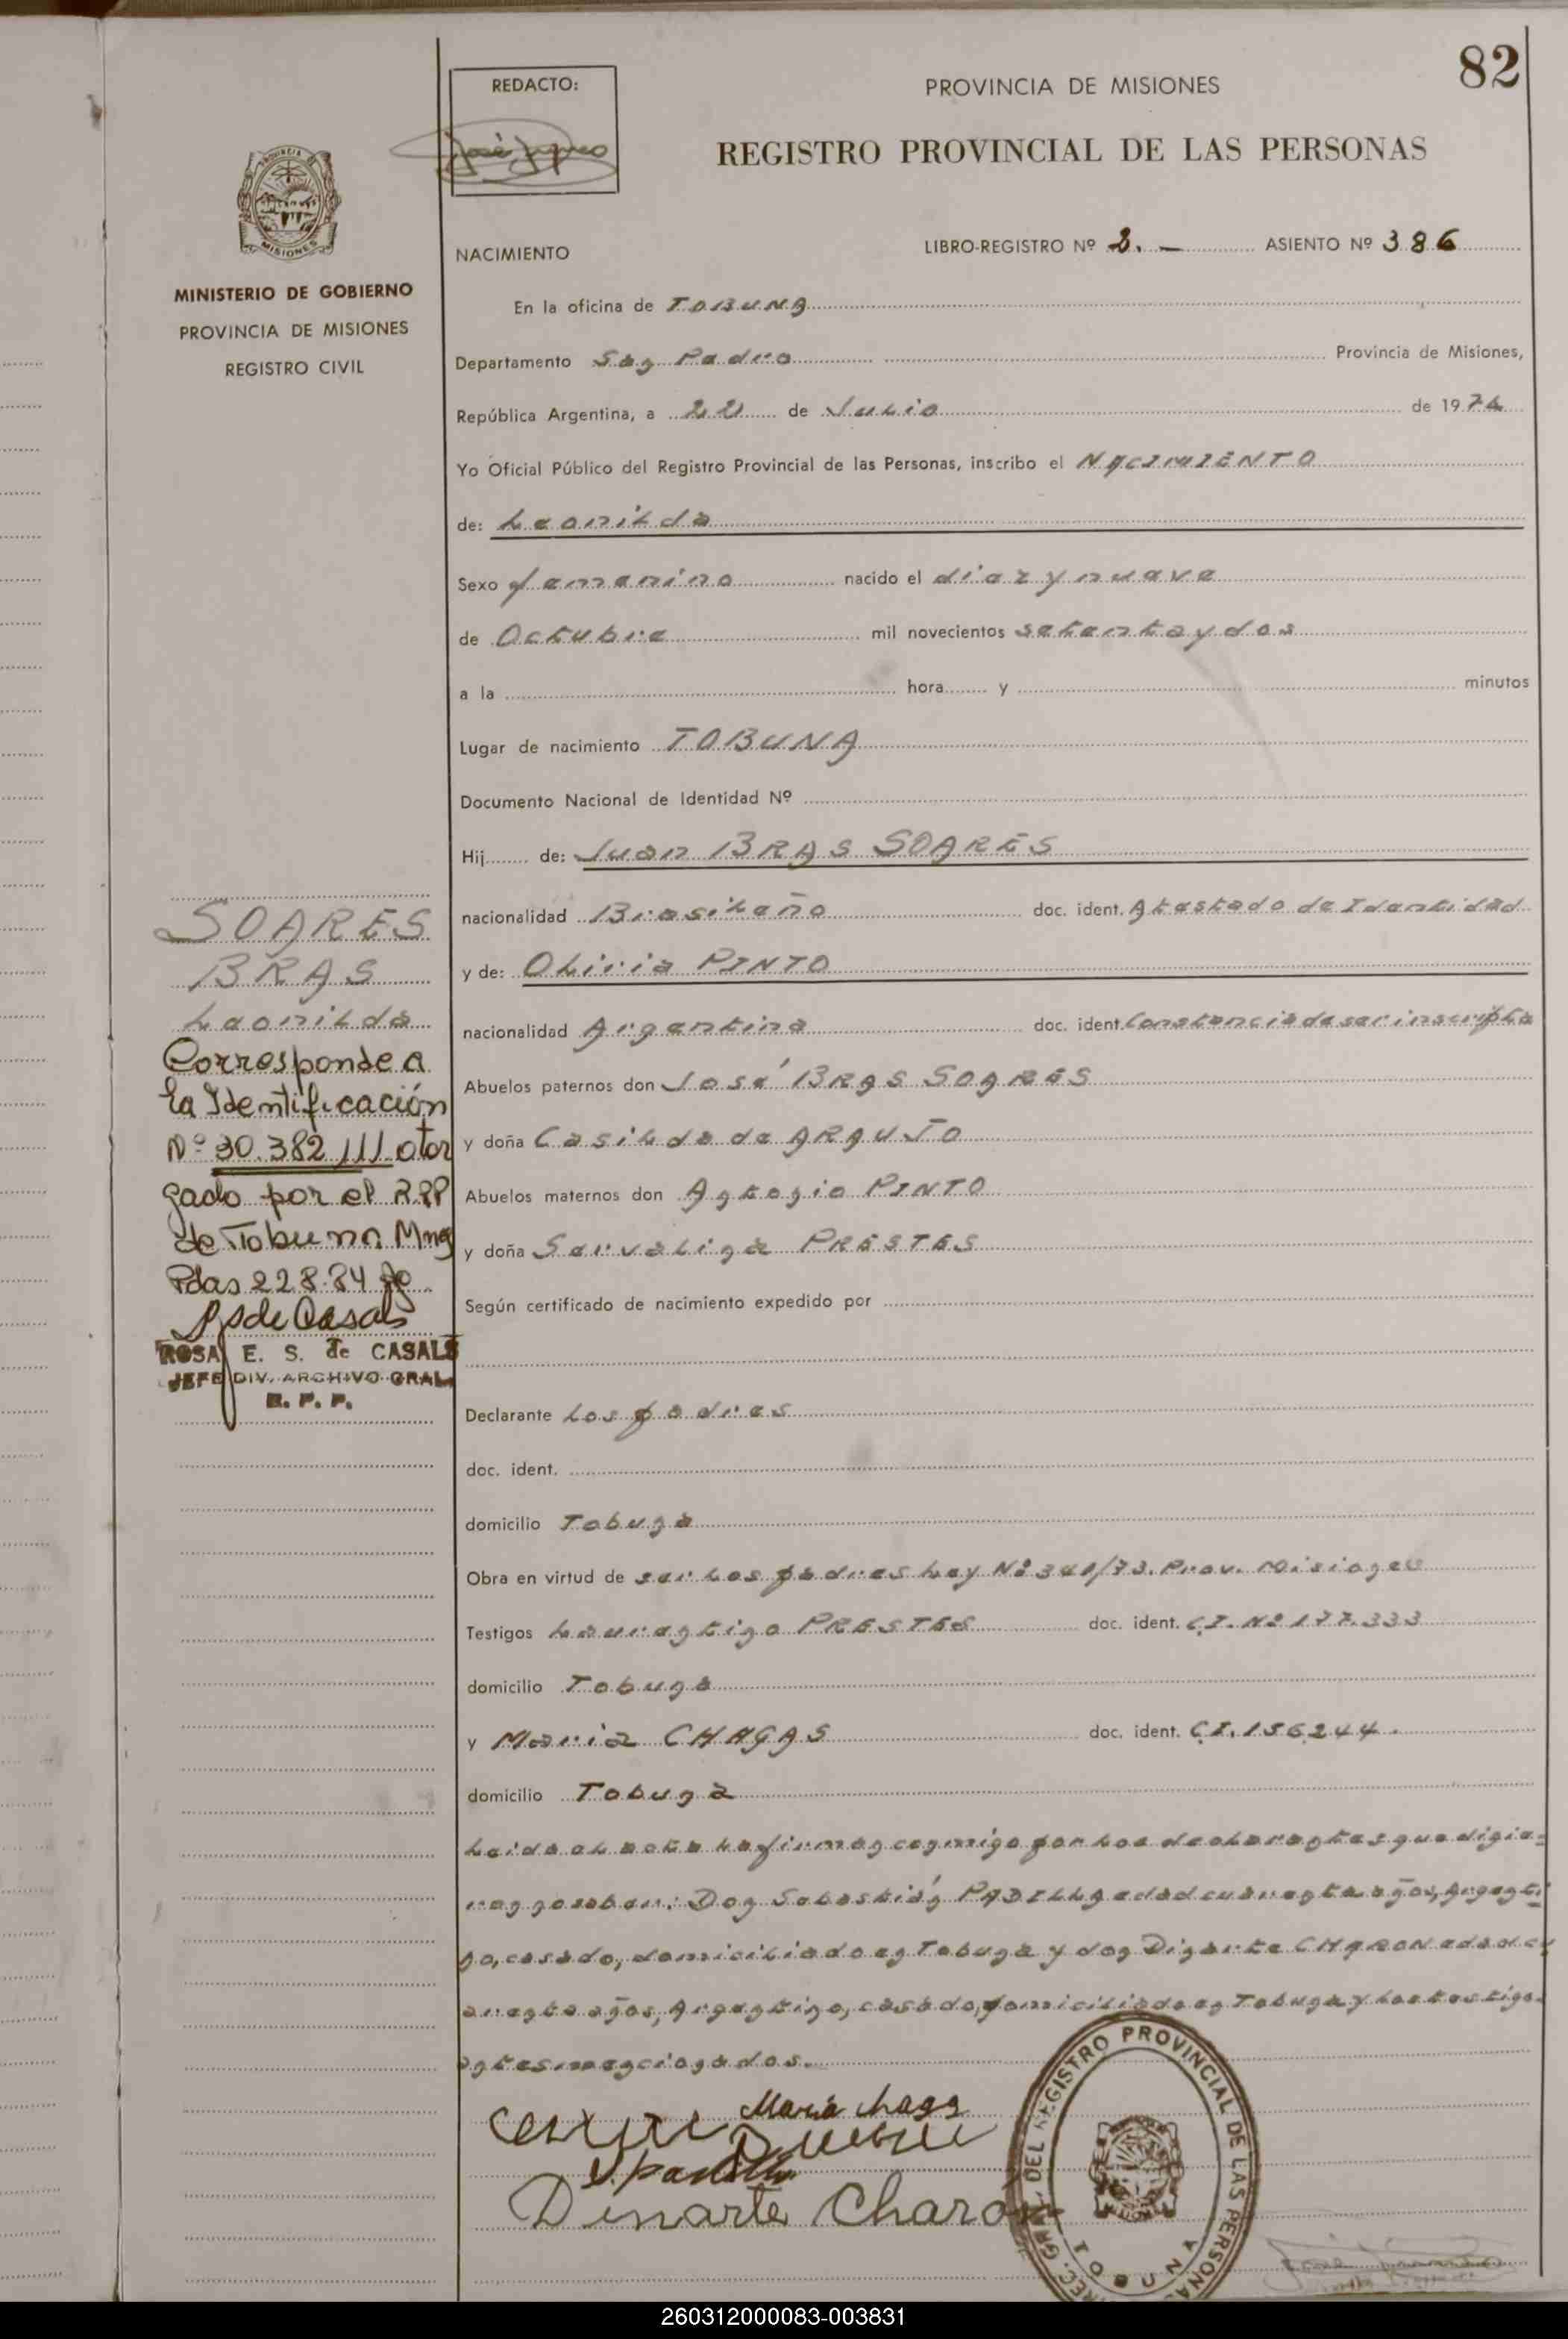 82
REDACTO:
PROVINCIA DE MISIONES
REGISTRO PROVINCIAL DE LAS PERSONAS
NACIMIENTO
LIBRO-REGISTRO Nº 2. - ASIENTO Nº 386
En la oficina de TOBUNA
Departamento San Pedro Provincia de Misiones,
República Argentina, a 22 de Julio de 1974
Yo Oficial Público del Registro Provincial de las Personas, inscribo el NACIMIENTO
de: Leonilda
Sexo femenino nacido el diez y nueve
de Octubre mil novecientos setenta y dos
a la hora y minutos
Lugar de nacimiento TOBUNA
Documento Nacional de Identidad Nº
Hij de: Juan BRAS SOARES
nacionalidad Brasileño doc. ident. Atestado de Identidad
y de: Oliria PINTO
nacionalidad Argentina doc. ident. Constancia de ser inscripta
Abuelos paternos don José BRAS SOARES
y doña Casilda de ARAUJO
Abuelos maternos don Antonio PINTO
y doña Servalina PRESTES
Según certificado de nacimiento expedido por
Declarante Los padres
doc. ident.
domicilio Tobuna
Obra en virtud de ser los padres Ley Nº 340/73. Prov. Misiones
Testigos Laurentino PRESTES doc. ident. C.I. Nº 177.333
domicilio Tobuna
y Maria CHAGAS doc. ident. C.I. 156244.
domicilio Tobuna
Leida el acta la firman conmigo por los declarantes que dijie-
ron no saber: Don Sebastián PADILLA edad cuarenta años, Argenti
no, casado, domiciliado en Tobuna y don Dinarte CHARON edad cu
arenta años, Argentino, casado, domiciliado en Tobuna y los testigos
antes mencionados.
Maria chags
S. padilla
Dinarte Charón
DIREC. GRAL. DEL REGISTRO PROVINCIAL DE LAS PERSONAS
TOBUNA
PROVINCIA DE
MISIONES
MINISTERIO DE GOBIERNO
PROVINCIA DE MISIONES
REGISTRO CIVIL
SOARES
BRAS
Leonilda
Corresponde a
la Identificación
Nº 30.382.111 otor
gado por el RPP
de Tobuna Mnes
Pdas 22.8.84
RSde Casals
ROSA E. S. de CASALS
JEFE DIV. ARCHIVO GRAL.
R. P. P.
260312000083-003831